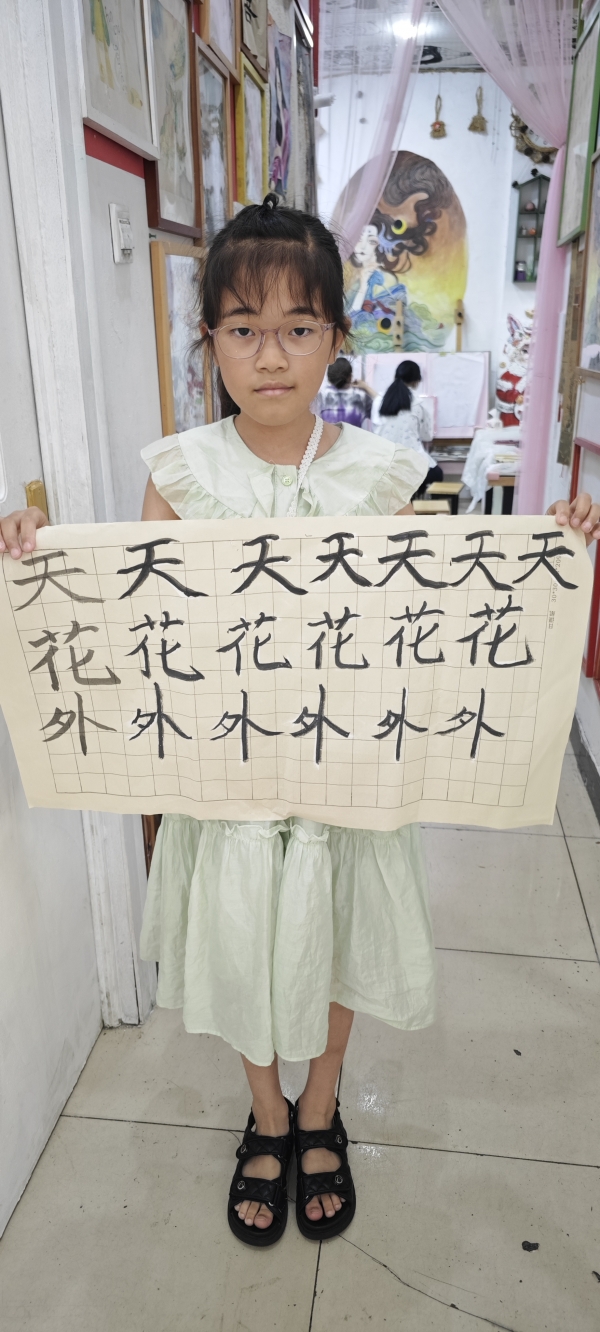 天天天天天天天
花花花花花花
外外外外外外